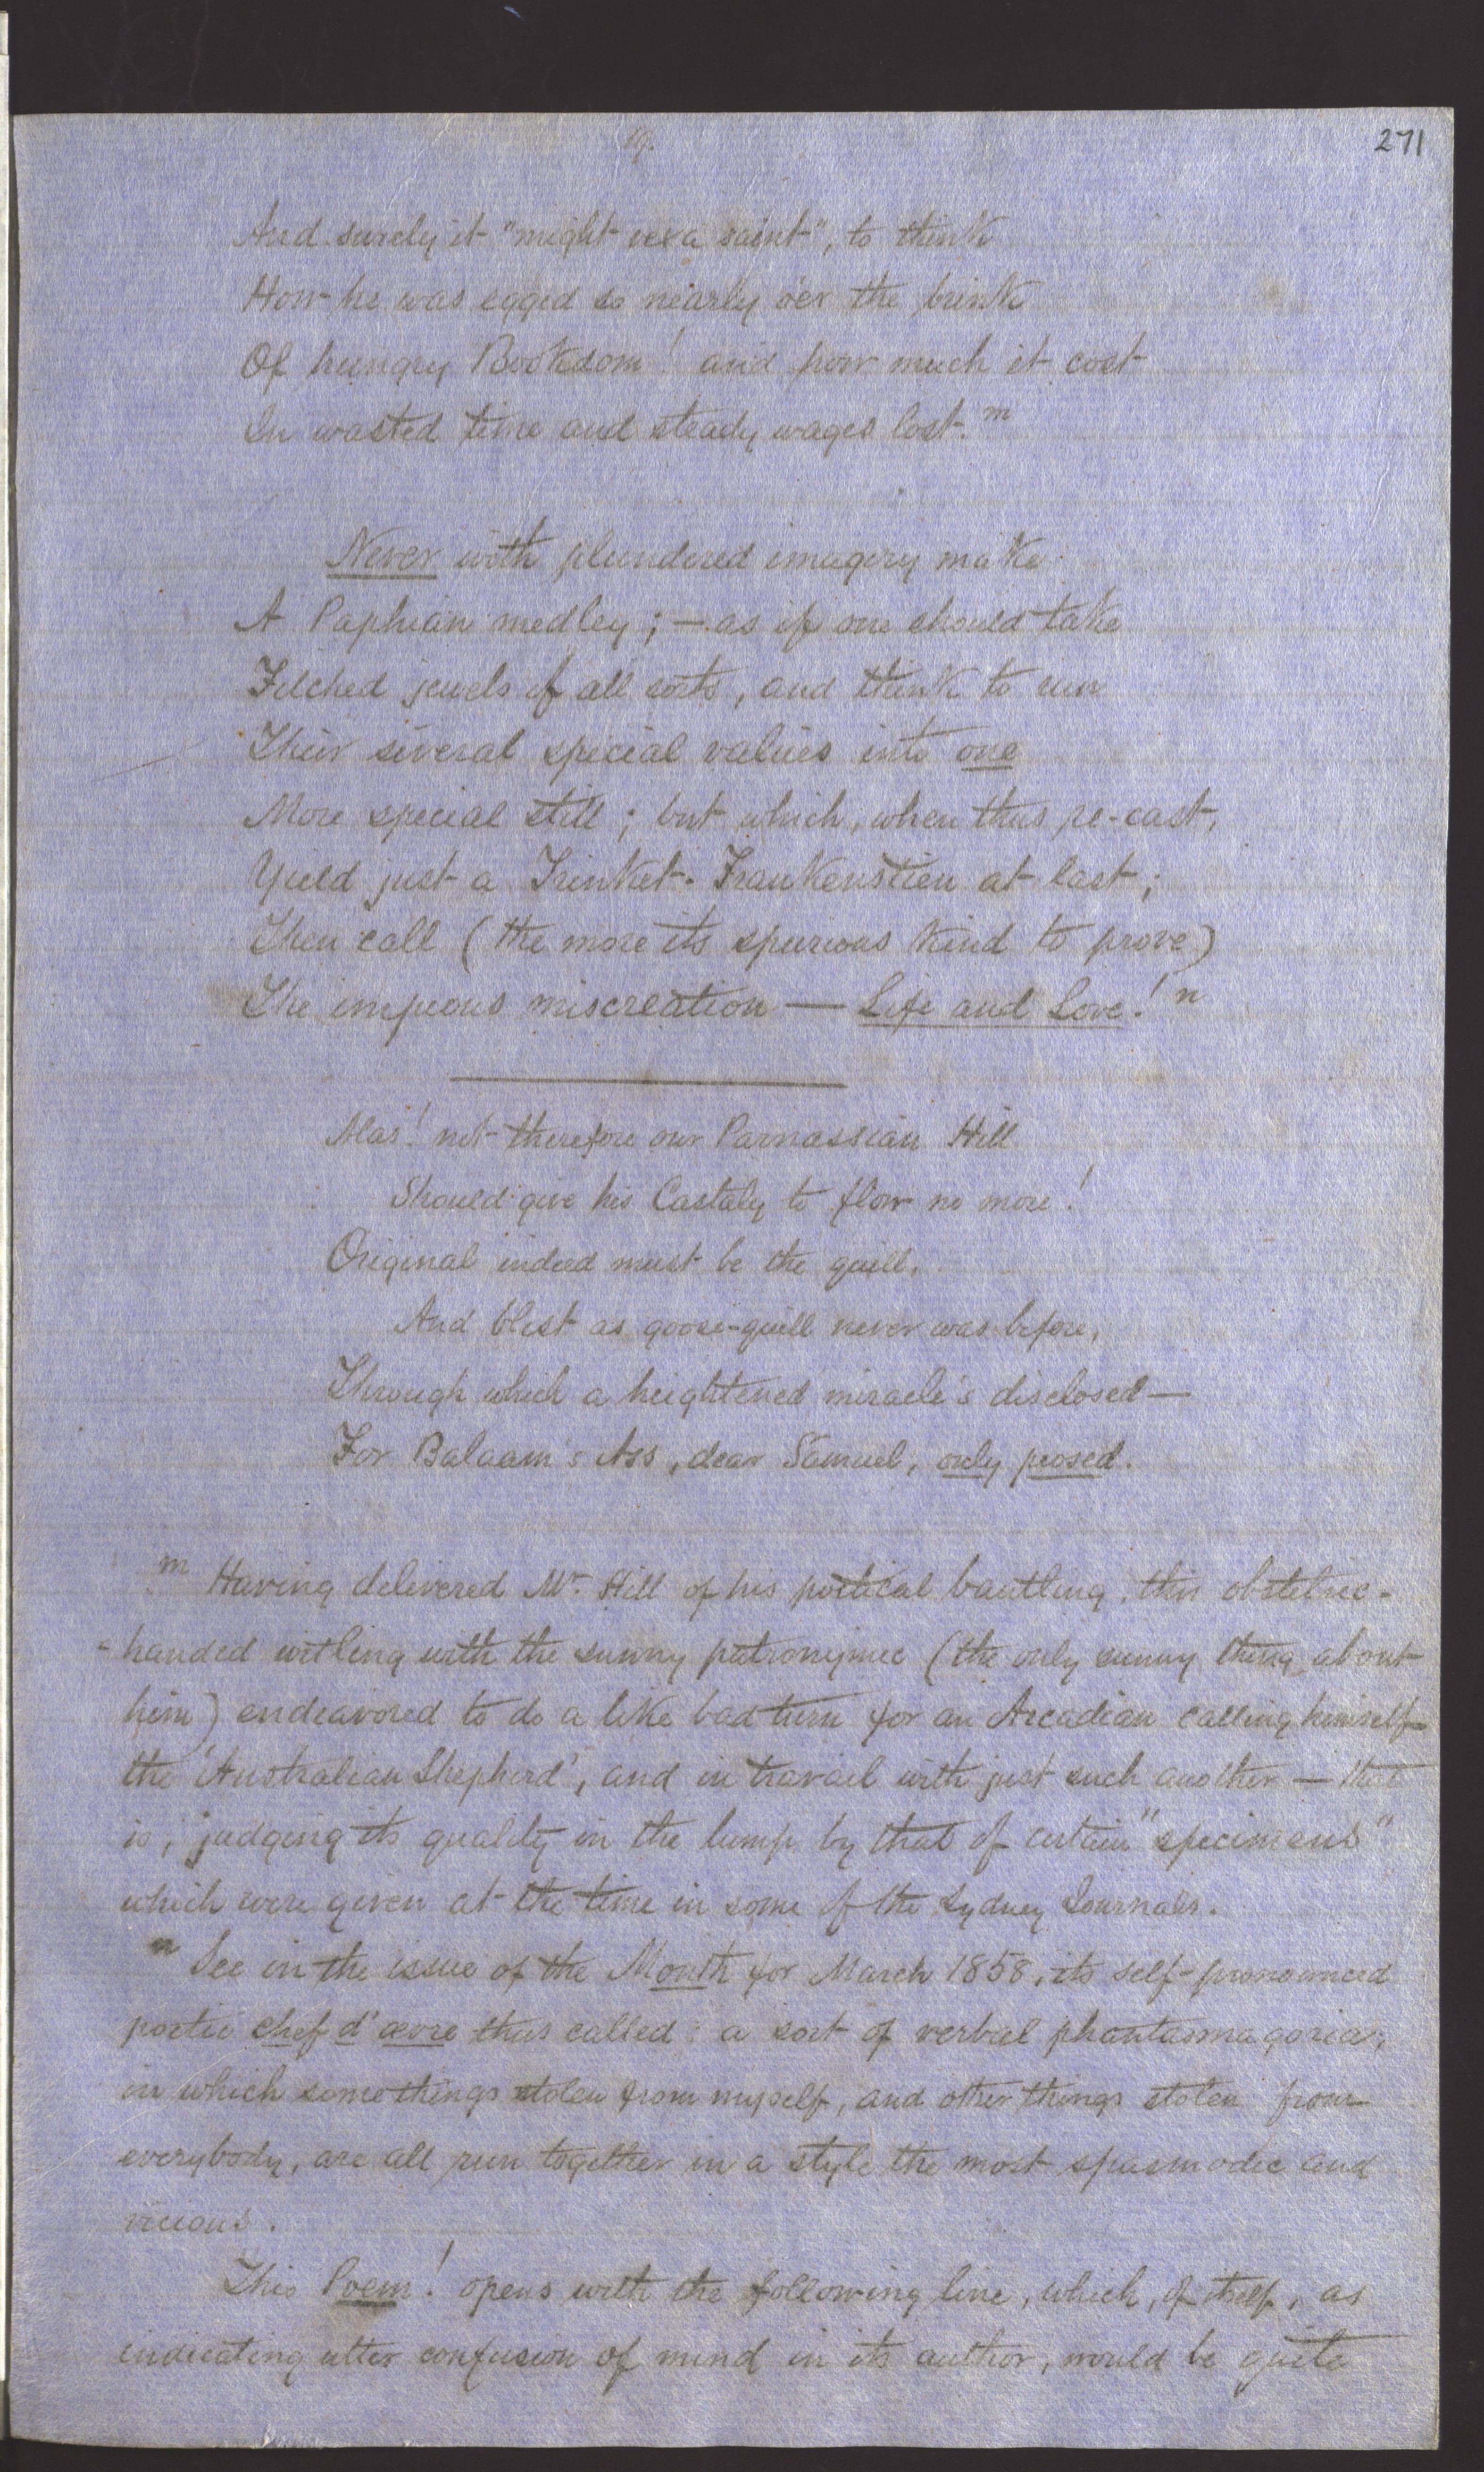 19.
271
And surely it "might vex a saint", to think
How he was egged so nearly o'er the brink
Of hungry Bookdom! and how much it cost
In wasted time and steady wages lost.m
Never with plundered imagery make
A Paphian medley; — as if one should take
Filched jewels of all sorts, and think to run
Their several special values into one
More special still; but which, when thus re-cast,
Yield just a Trinket-Frankenstien at last;
Then call (the more its spurious kind to prove)
The impious miscreation — Life and Love!n
Alas! not therefore our Parnassian Hill
Should give his Castaly to flow no more!
Original indeed must be the quill,
And blest as goose-quill never was before,
Through which a heightened miracle's disclosed —
For Balaam's Ass, dear Samuel, only prosed.
m Having delivered Mr. Hill of his poetical bantling, this obstetric-
-handed witling with the sunny patronymic (the only sunny thing about
him) endeavored to do a like bad turn for an Arcadian calling himself
the 'Australian Shepherd', and in travail with just such another — that
is, judging its quality in the lump by that of certain "specimens"
which were given at the time in some of the Sydney Journals.
n See in the issue of the Month for March 1858, its self-pronounced
poetic chef d'œvre thus called: a sort of verbal phantasmagorias,
in which some things stolen from myself, and other things stolen from
everybody, are all run together in a style the most spasmodic and
vicious.
This Poem! opens with the following line, which, of itself, as
indicating utter confusion of mind in its author, would be quite